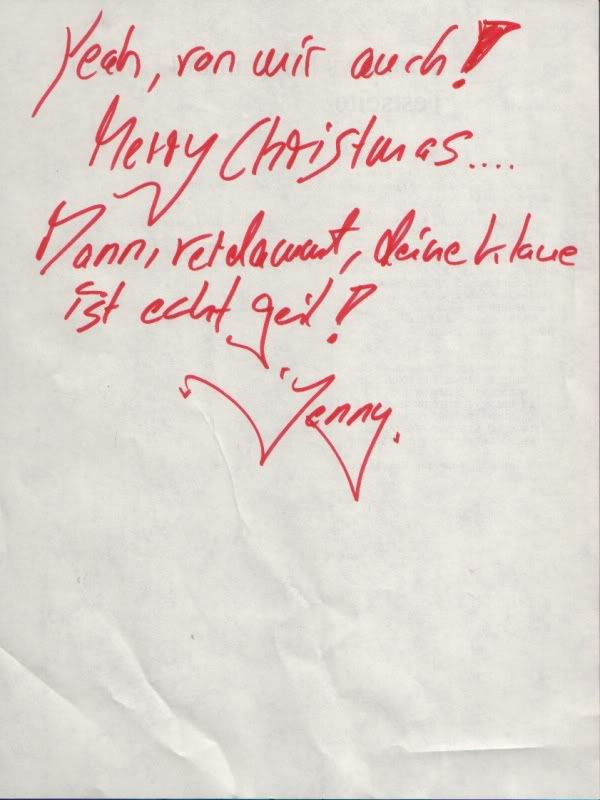 Yeah, von mir auch!
Merry Christmas....
Mann, verdammt, deine Klaue
ist echt geil!
Jenny.